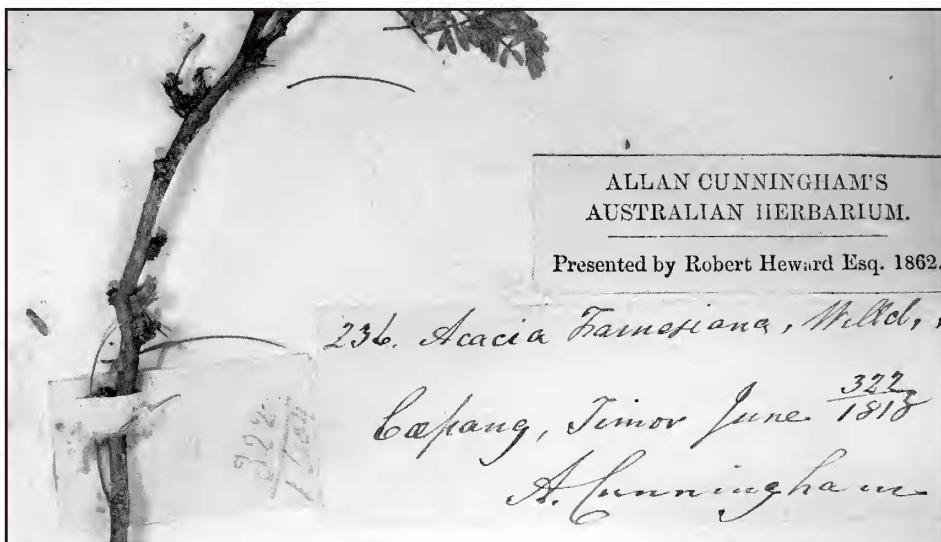 ALLAN CUNNINGHAM'S
AUSTRALIAN HERBARIUM.
Presented by Robert Heward Esq. 1862.
236. Acacia Farnesiana, Willd,
Coepang, Timor June 322/1818
A. Cunningham
322